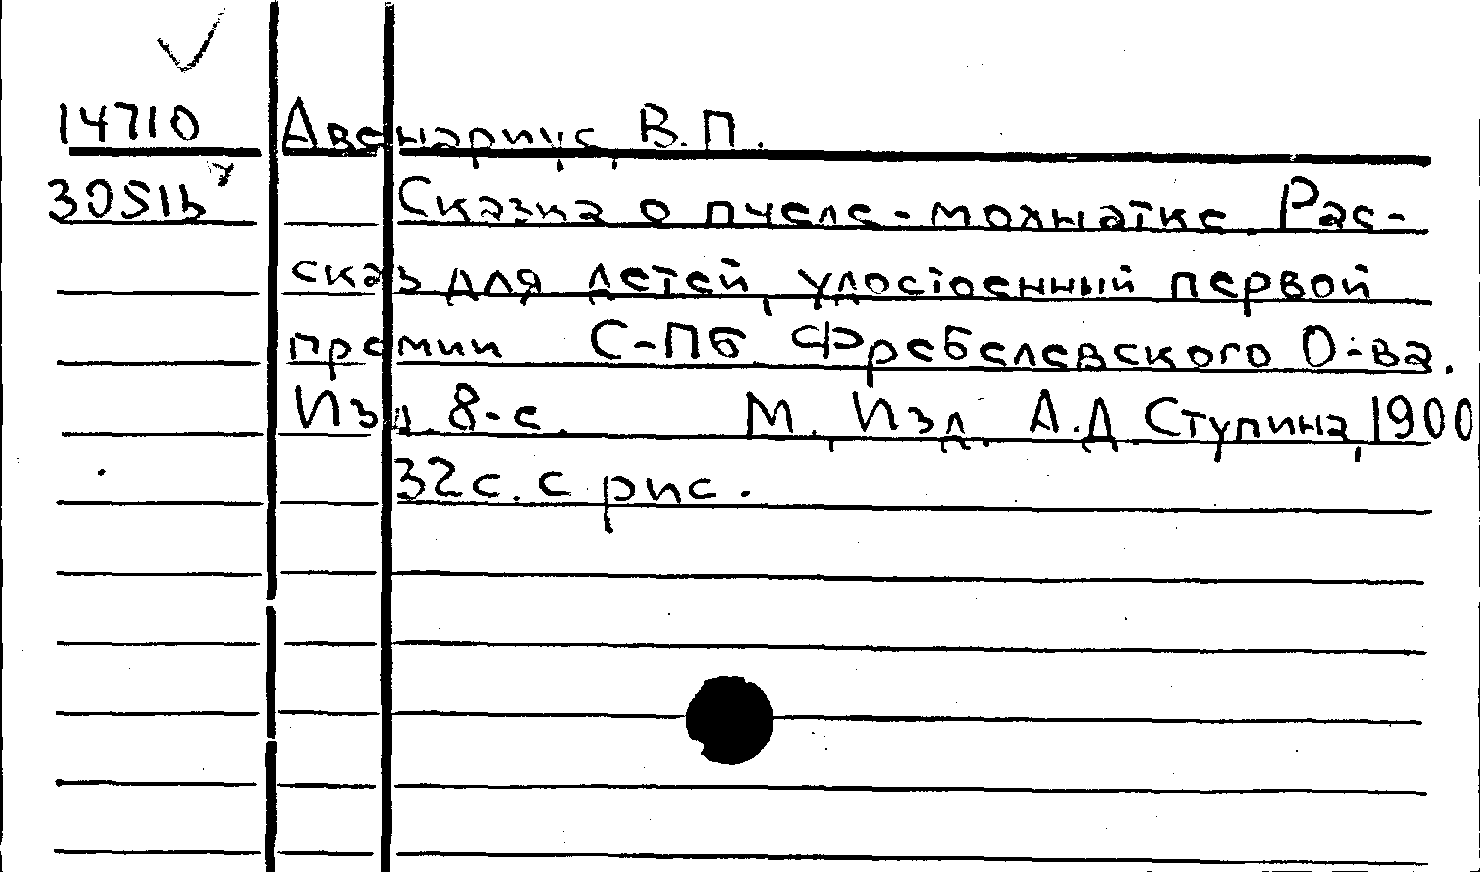 14710 Авенариус, В.П.
3051b 7 Сказка о пчеле-мохнатке. Рас-
сказ для детей, удостоенный первой
премии С-Пб Фребелевского О-ва.
Изд. 8-е. М., Изд. А.Д. Ступина, 1900
32 с. с рис.